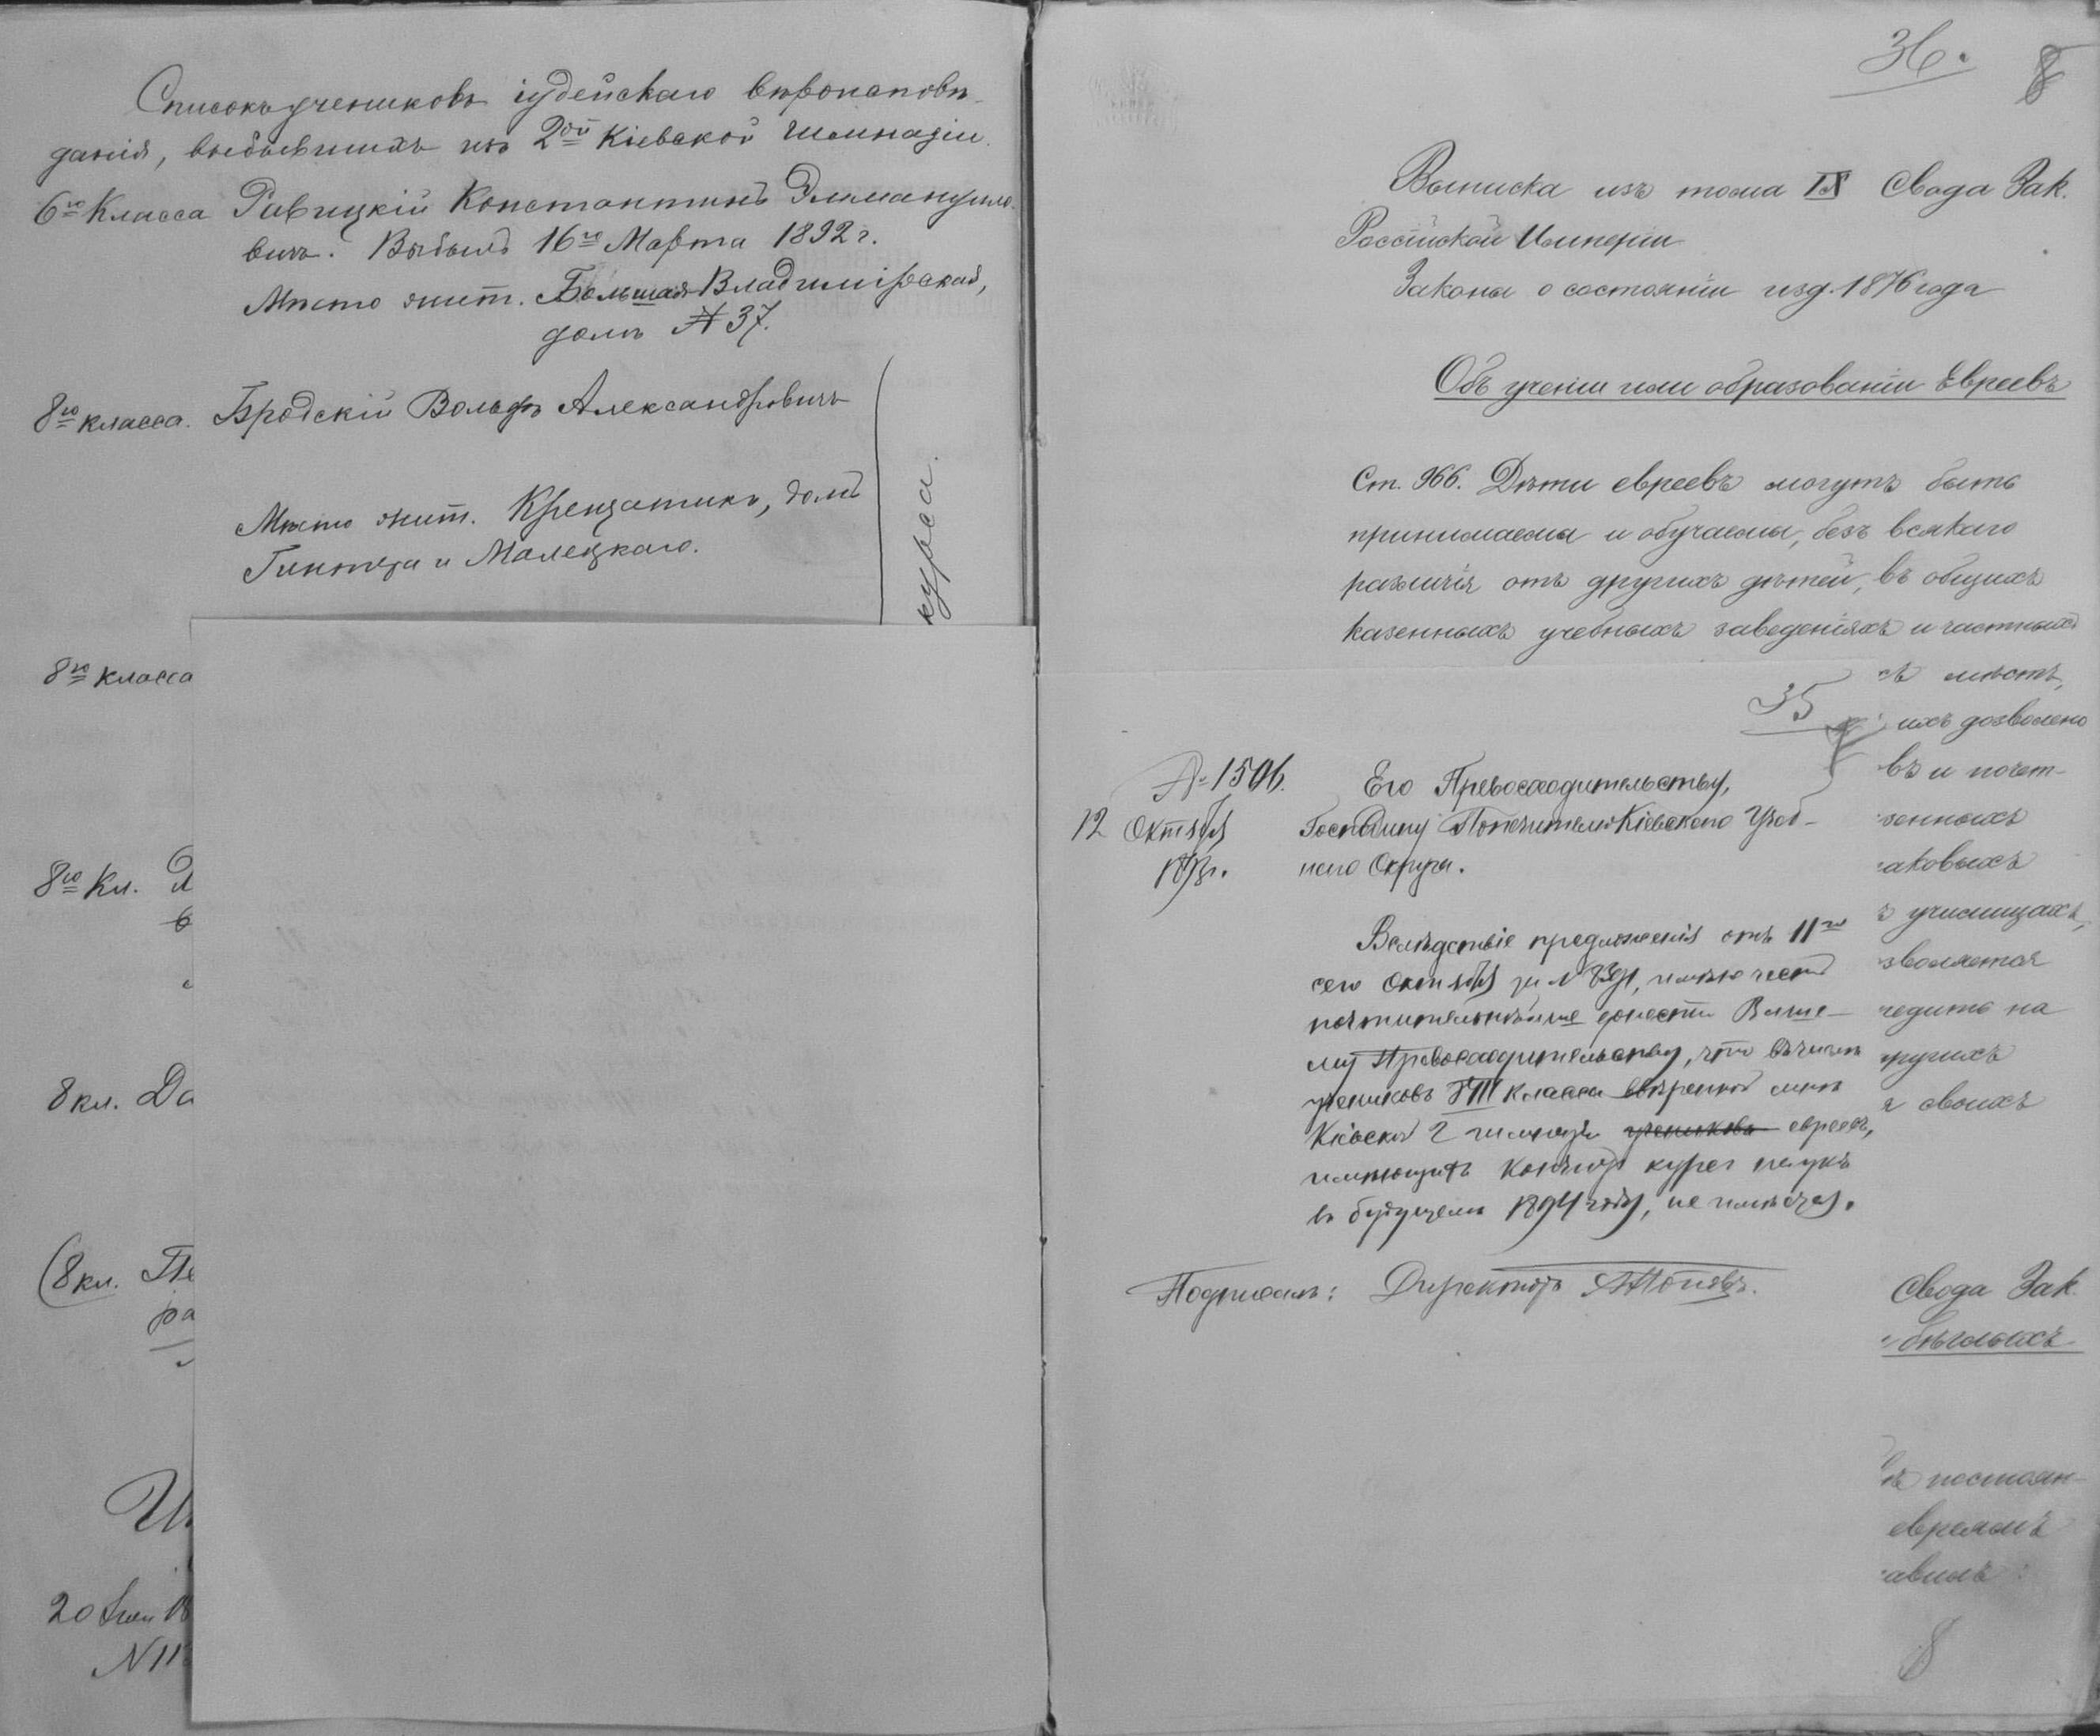 Списокъ учениковъ іудейскаго вѣроисповѣ-
данія, выбывшихъ изъ 2ой Кіевской Гимназіи.
6го Класса Ривицкій Константинъ Эммануило-
вичъ. Выбылъ 16го Марта 1892 г.
Мѣсто жит. Большая Владимірская,
домъ № 37.
8го класса. Бродскій Вольфъ Александровичъ
Мѣсто жит. Крещатикъ, домъ
и Малецкаго.
курса.
8го класса
8го Кл.
8 кл. Да
(8 кл. Пе
ра
20
N 11
36. 8
Выписка изъ тома IX Свода Зак.
Россійской Имперіи
Законы о состояніи изд. 1876 года
Объ ученіи или образованіи Евреевъ
Ст. 966. Дѣти евреевъ могутъ быть
принимаемы и обучаемы, безъ всякаго
различія отъ другихъ дѣтей, въ общихъ
казенныхъ учебныхъ заведеніяхъ и частныхъ
35
№ 1506.
12 Октября
1893 г.
Его Превосходительству,
Господину Попечителю Кіевскаго Учеб-
наго Округа.
Вслѣдствіе предложенія отъ 11го
сего Октября за № имѣю честь
почтительнѣйше донести Ваше-
му Превосходительству, что въ числѣ
учениковъ VIII класса ввѣренной мнѣ
Кіевской 2 гимназіи учениковъ евреевъ,
имѣющихъ кончить курсъ наукъ
въ будущемъ 1894 году, не имѣется.
Подписалъ: Директоръ
мѣстъ,
ихъ дозволено
въ и почет-
зенныхъ
аковыхъ
училищахъ,
зволяется
редить на
ругихъ
своихъ
Свода Зак.
бѣглыхъ
постоян-
евреямъ
авилъ
8